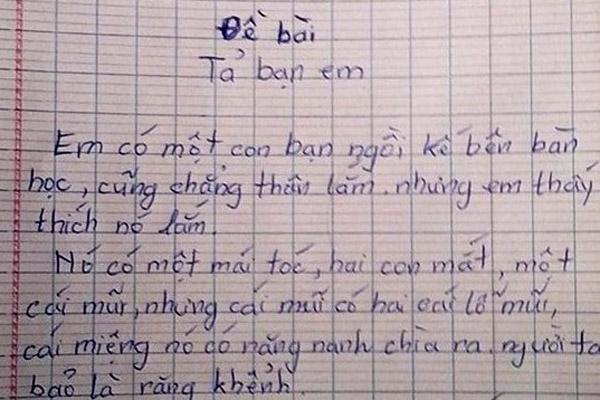 Đề bài
Tả bạn em
Em có một con bạn ngồi kế bên bàn
học, cũng chẳng thân lắm. nhưng em thấy
thích nó lắm.
Nó có một mái tóc, hai con mắt, một
cái mũi, nhưng cái mũi có hai cái lỗ mũi,
cái miệng nó có răng nanh chìa ra. người ta
bảo là răng khểnh.